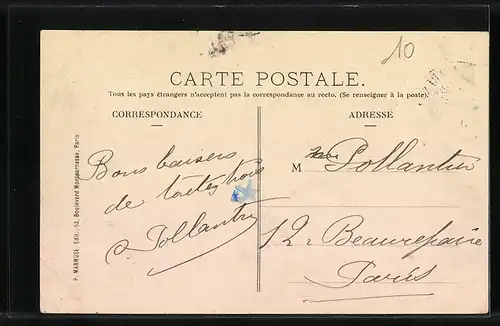 10
CARTE POSTALE.
Tous les pays étrangers n'acceptent pas la correspondance au recto. (Se renseigner à la poste).
CORRESPONDANCE
ADRESSE
Bons baisers
de toutes trois
Pollantru
M Pollantru
12 Beaurepaire
Paris
P. MARMUSE. Edit.-53, Boulevard Montparnasse, Paris